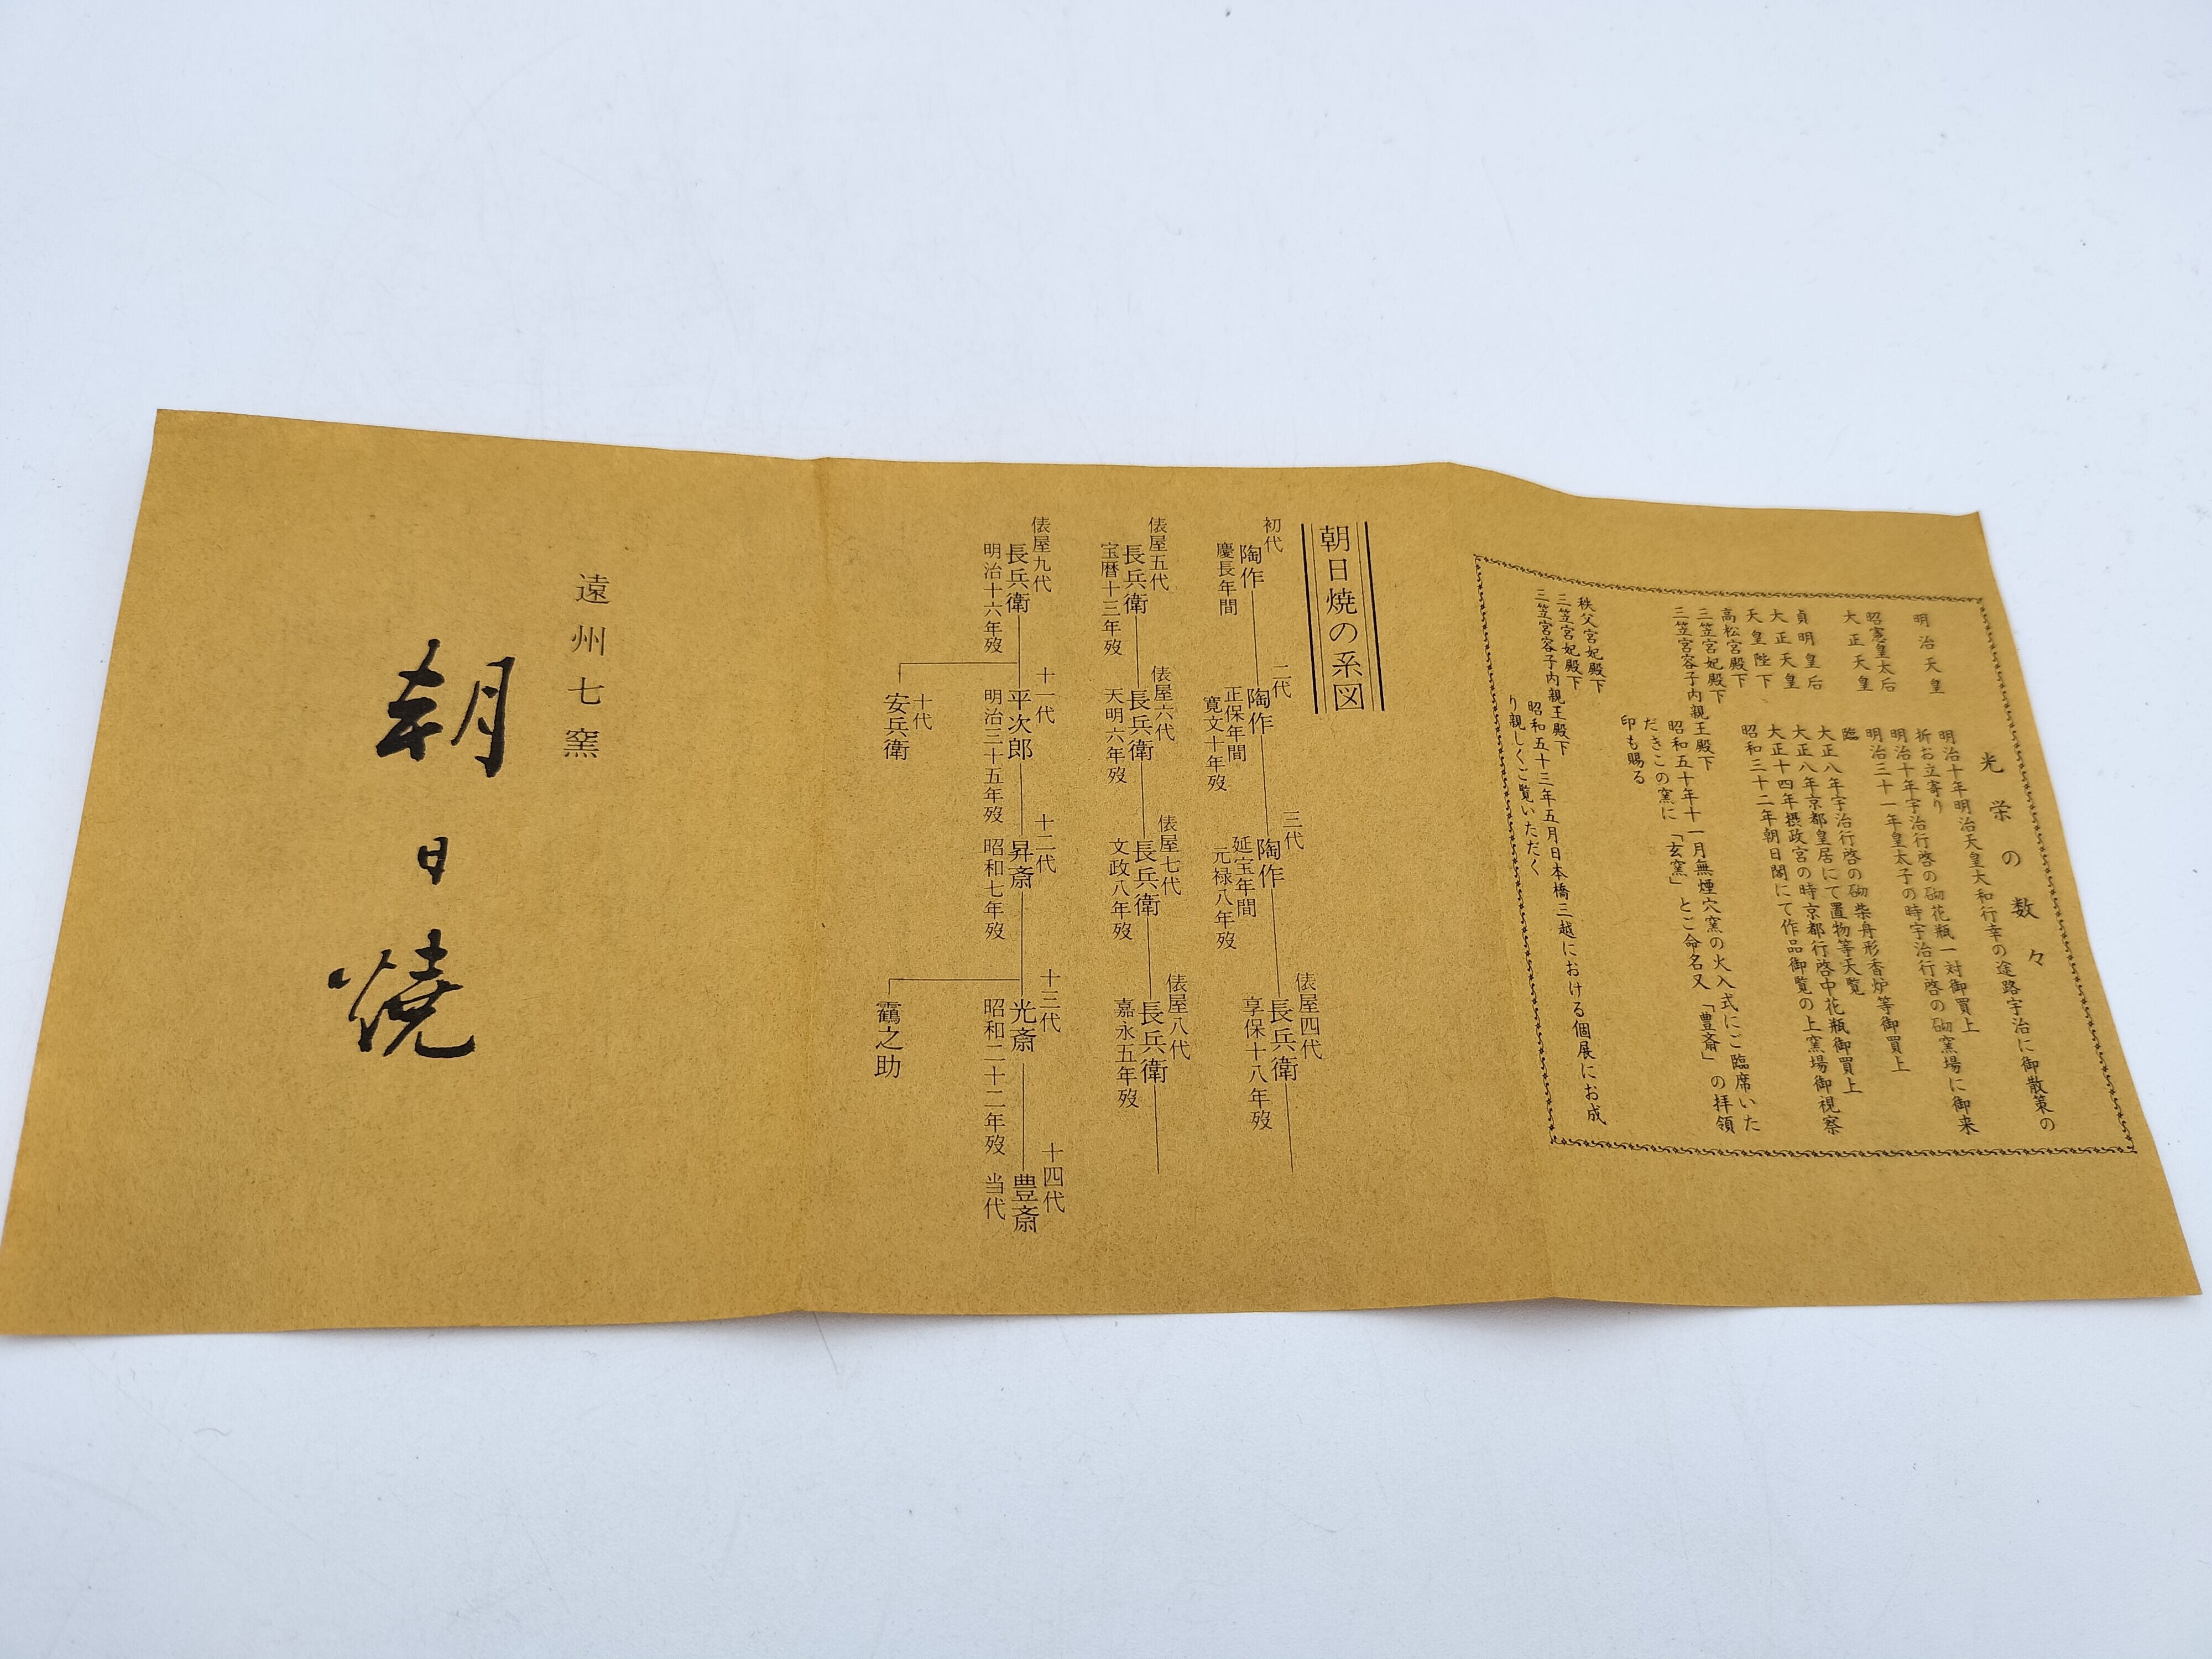 光栄の数々
明治天皇
明治十年明治天皇大和行幸の途路宇治に御散策の
折お立寄り
昭憲皇太后
明治十年宇治行啓の砌花瓶一対御買上
大正天皇
明治三十一年皇太子の時宇治行啓の砌窯場に御来
臨
貞明皇后
大正八年宇治行啓の砌柴舟形香炉等御買上
大正天皇
大正八年京都皇居にて置物等天覧
天皇陛下
大正十四年摂政宮の時京都行啓中花瓶御買上
高松宮殿下
昭和三十二年朝日閣にて作品御覧の上窯場御視察
三笠宮妃殿下
三笠宮容子内親王殿下
昭和五十年十一月無煙穴窯の火入式にご臨席いた
だきこの窯に「玄窯」とご命名又「豊斎」の拝領
印も賜る
秩父宮妃殿下
三笠宮妃殿下
三笠宮容子内親王殿下
昭和五十三年五月日本橋三越における個展にお成
り親しくご覧いただく
朝日焼の系図
初代
陶作
慶長年間
二代
陶作
正保年間
寛文十年歿
三代
陶作
延宝年間
元禄八年歿
俵屋四代
長兵衛
享保十八年歿
俵屋五代
長兵衛
宝暦十三年歿
俵屋六代
長兵衛
天明六年歿
俵屋七代
長兵衛
文政八年歿
俵屋八代
長兵衛
嘉永五年歿
俵屋九代
長兵衛
明治十六年歿
十代
安兵衛
十一代
平次郎
明治三十五年歿
十二代
昇斎
昭和七年歿
十三代
光斎
昭和二十二年歿
靍之助
十四代
豊斎
当代
遠州七窯
朝日焼